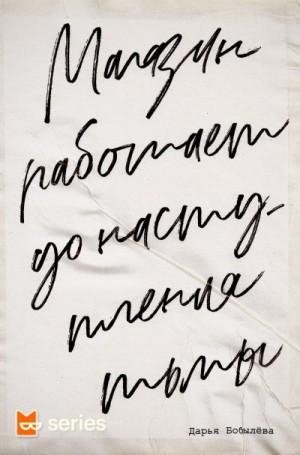 Магазин
работает
до насту-
пления
тьмы
series
Дарья Бобылёва